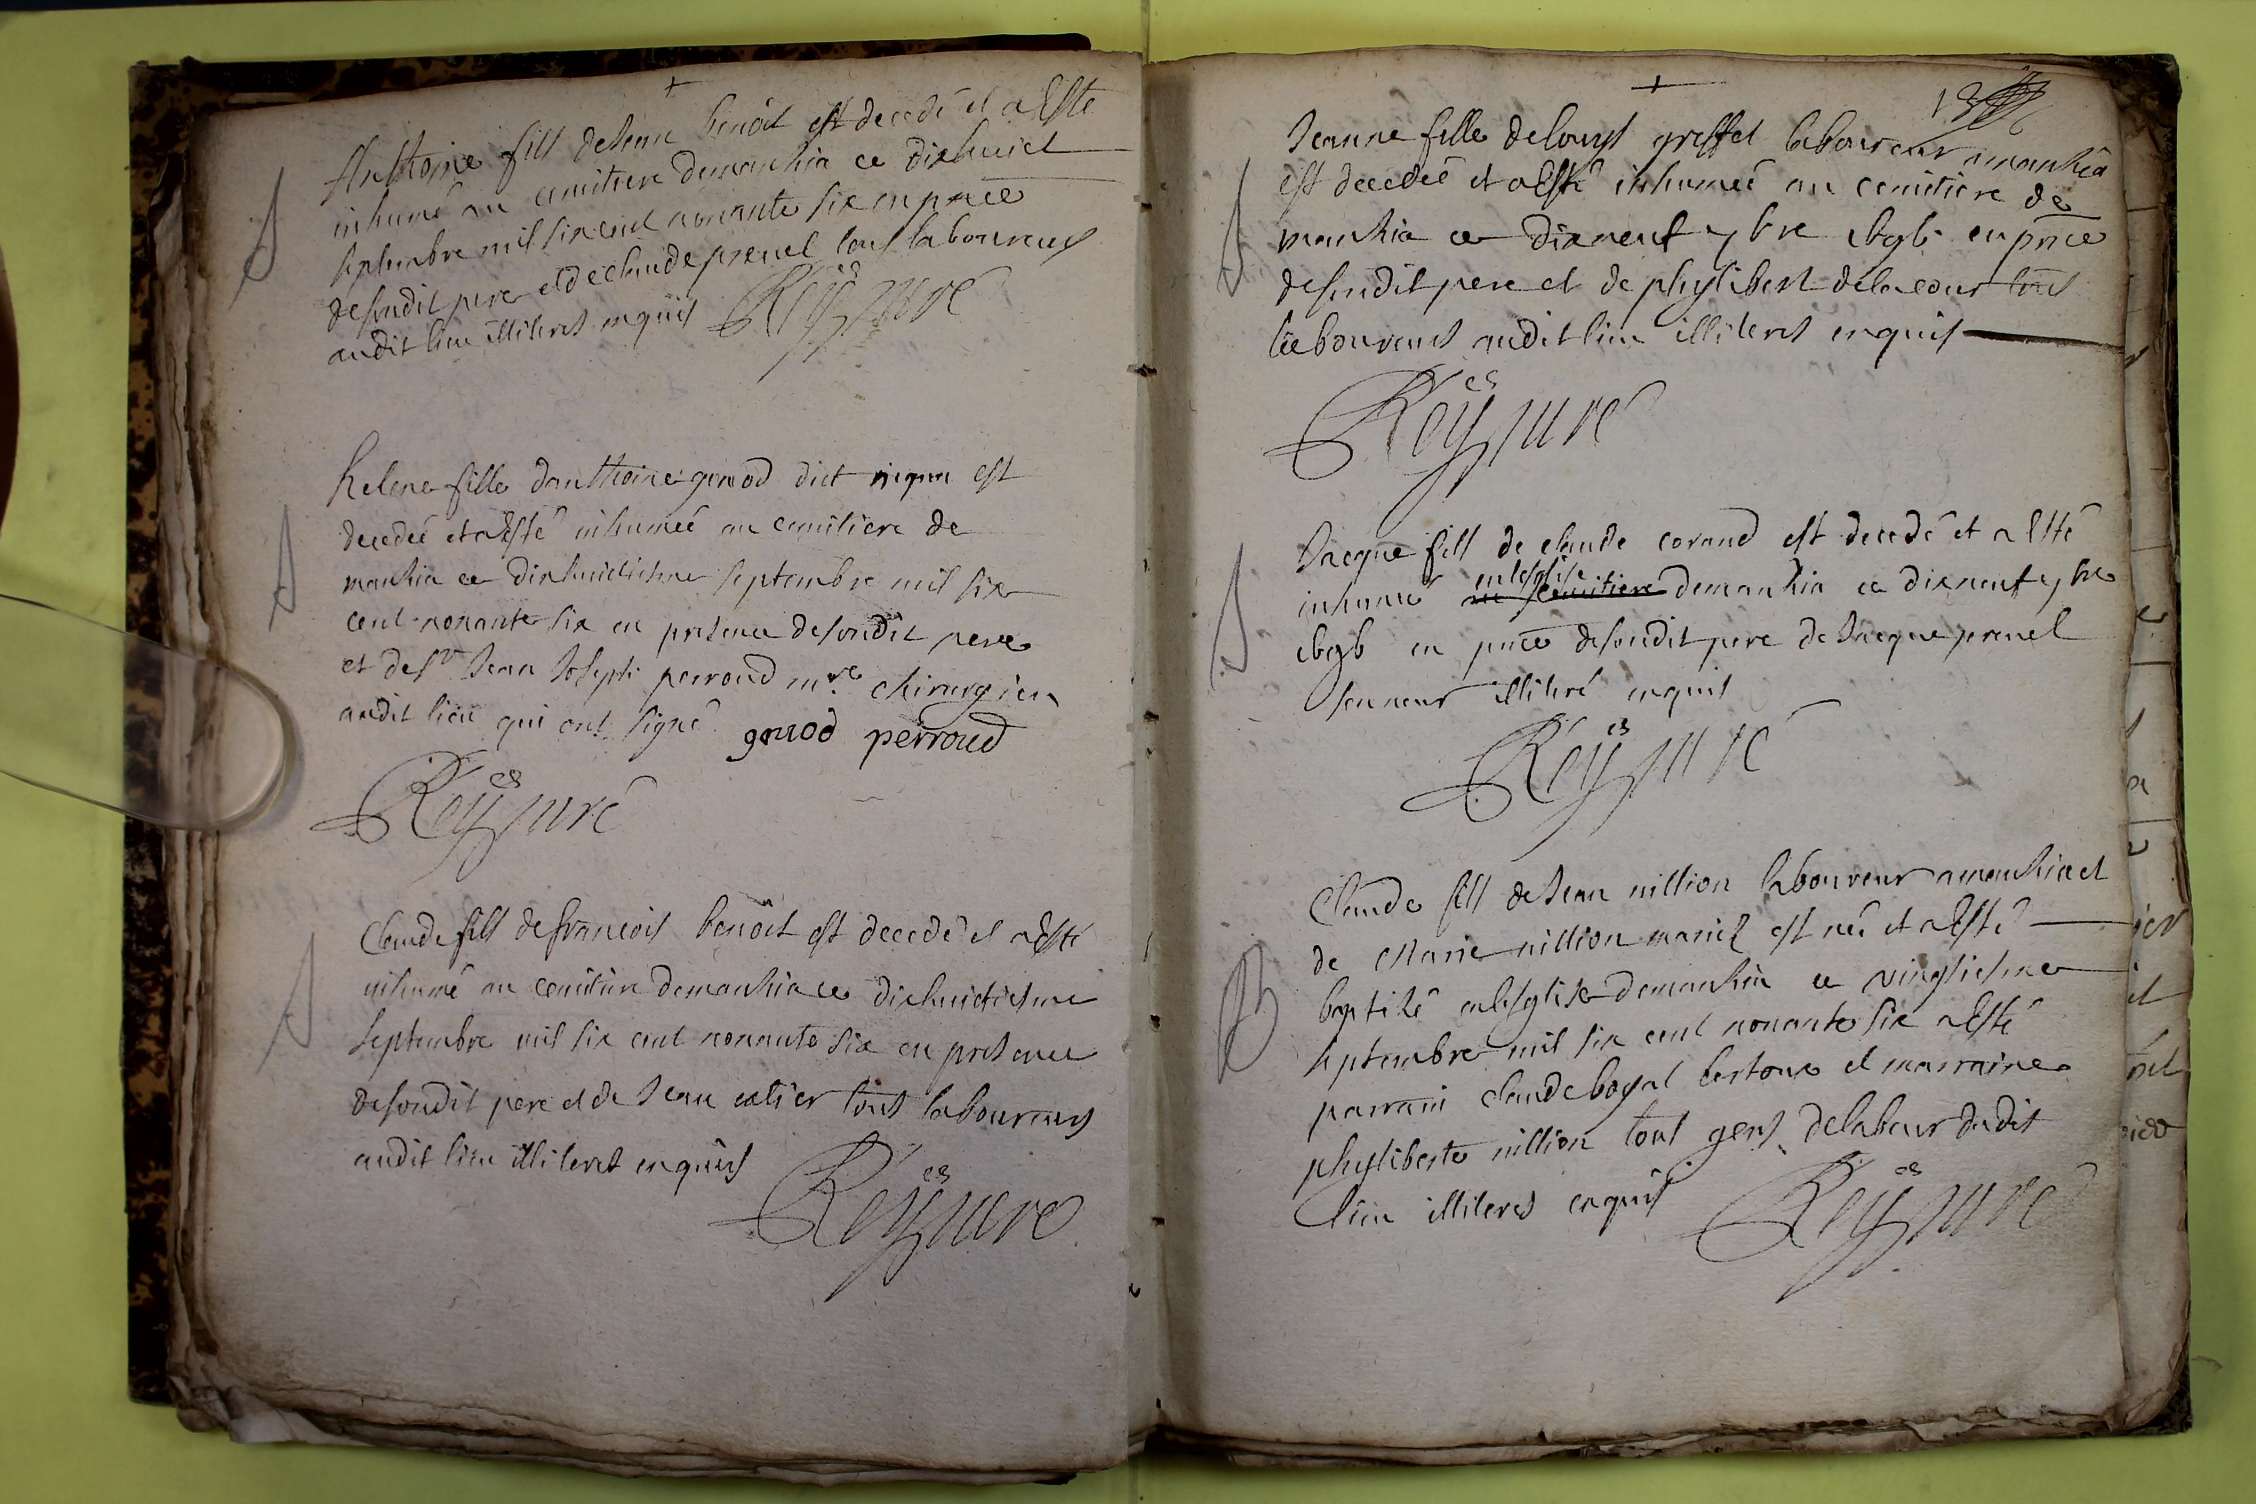 Anthoine fils de Jean benoit est decedé et a Esté
inhumé au cemitiere de manzia ce dixhuict
septembre mil six cent nonante six en pnce
desondit pere et de claude prevel tous laboureurs
audit lieu illiteres enquis Rey curé
helene fille danthoine genod dict est
decedeé et a Esté inhumeé au cemitiere de
manzia ce dixhuictiesme septembre mil six
cent nonante six en presence desondit pere
et de Sr Jean Joseph perroud mre chirurgien
audit lieu qui ont signé genod perroud
Rey curé
Claude fils de francois benoit est decedé et a Esté
inhumé au cemitiere de manzia ce dixhuictiesme
septembre mil six cent nonante six en presence
desondit pere et de Jean catier tous laboureurs
audit lieu illiteres enquis
Rey curé
Jeanne fille de louys greffet laboureur a manzia
est decedeé et a Esté inhumeé au cemitiere de
manzia ce dixneuf 7bre en pnce
desondit pere et de phylibert delacour tous
laboureurs audit lieu illiteres enquis
Rey curé
Jacque fils de claude corand est decedé et a Esté
en lesglise
inhumé au cemitiere de manzia ce dixneuf 7bre
en pnce desondit pere de Jacque prevel
sonneur illiteré enquis
Rey curé
Claude fils de Jean million laboureur a manzia et
de Marie million mariez est neé et a Esté
baptizé en lesglise de manzia ce vingtiesme
septembre mil six cent nonante six a Esté
parrain claude boyat bertoux et marraine
phyliberte million tous gens de labeur dudit
lieu illiteres enquis
Rey curé